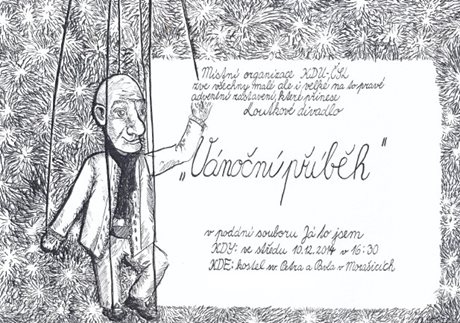 Místní organizace KDU-ČSL
zve všechny malé ale i velké na to pravé
adventní zastavení, které přinese
Loutkové divadlo
„Vánoční příběh"
v podání souboru Já to jsem
KDY: ve středu 10.12.2014 v 16:30
KDE: kostel sv. Petra a Pavla v Morašicích